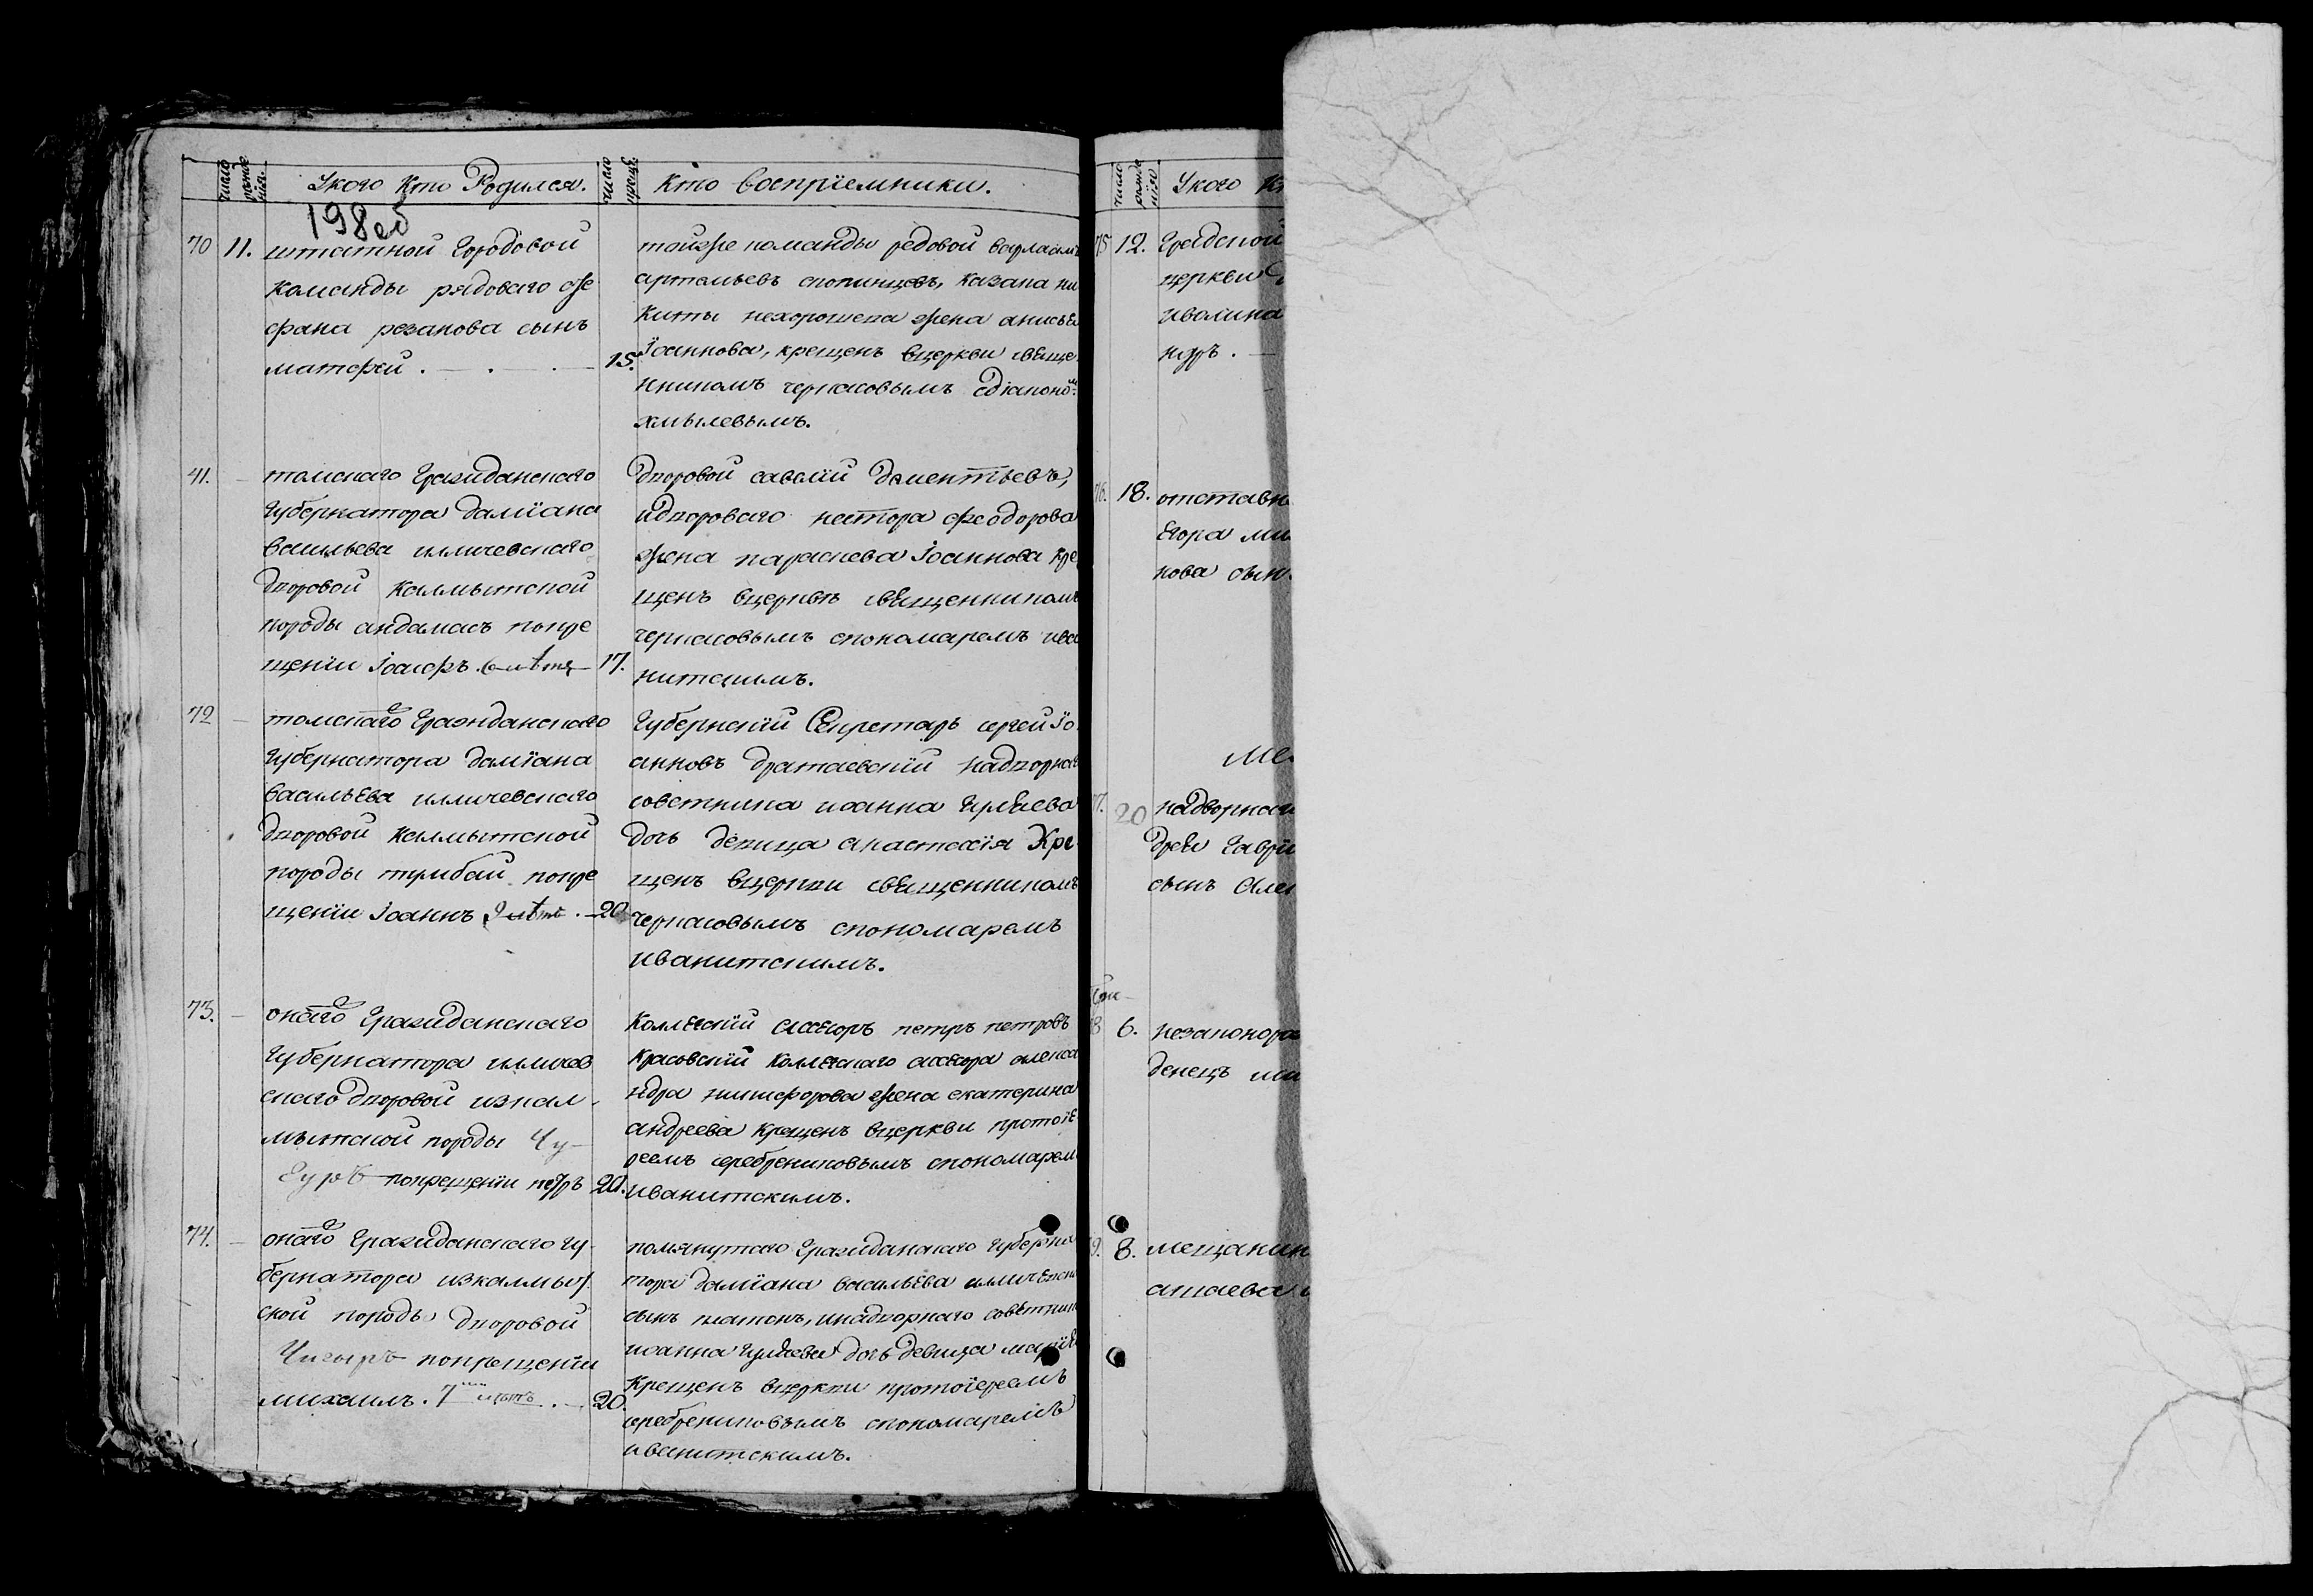 число рожденія.
Укого Кто Родился.
число крещ.
Кто восприемники.
198об
70 11. штатной Городовой
команды рядоваго сте
фана резанова сынъ
матфей . — . — 15.
тойже команды редовой варлаам
артемьевъ скопинцевъ, казака ни
киты нехорошева жена анисья
Іоаннова, крещенъ вцеркви свяще
нникомъ черкасовымъ сдіакономъ
хмылевымъ.
41. — томскаго Гражданскаго
Губернатора даміана
васильева илличевскаго
дворовой калмытской
породы андамасъ покре
щеніи Іосифъ. 6 лѣтъ — 17.
дворовой савелій дементьевъ,
идвороваго нестора феодорова
жена параскева Іоаннова кре
щенъ вцерквѣ священникомъ
черкасовымъ спономаремъ ива
нитскимъ.
72 — томскаго Гражданскаго
Губернатора даміана
васильева илличевскаго
дворовой калмытской
породы покре
щеніи Іоаннъ 9 лѣтъ . — 20.
Губернскій Секретарь сергей Іо
анновъ надворнаго
советника иоанна
дочь девица анастасія Кре
щенъ вцеркви священникомъ
черкасовымъ спономаремъ
иванитскимъ.
73. — онаго Гражданскаго
Губернатора илличев
скаго дворовой изкал
мытской породы Чу-
гуръ покрещеніи петръ 20.
Коллегскій ассесоръ петръ петровъ
красовскій коллегскаго ассесора алекса
ндра никифорова жена екатерина
андреева крещенъ вцеркви протоіе
реемъ серебрениковымъ спономарем
иванитскимъ.
74. — онаго Гражданскаго гу
бернатора изкалмыт
ской породы дворовой
Чигыръ покрещеніи
михаилъ. 7 лѣтъ . — 20.
помянутаго Гражданскаго Губерна
тора даміана васильева илличевска
сынъ платонъ, инадворнаго советник
иоанна дочь девица марія
Крещенъ вцеркви протоіереемъ
серебрениковымъ спономаремъ
иванитскимъ.
число рожденія
Укого К
75 12. Градской
церкви
ивалина
ндръ . —
76. 18. отставн
Егора ми
кова сын
77. 20 надворнаг
дрея Гаври
сынъ Алек
78 6. незаконоро
денецъ
79. 8. мещанин